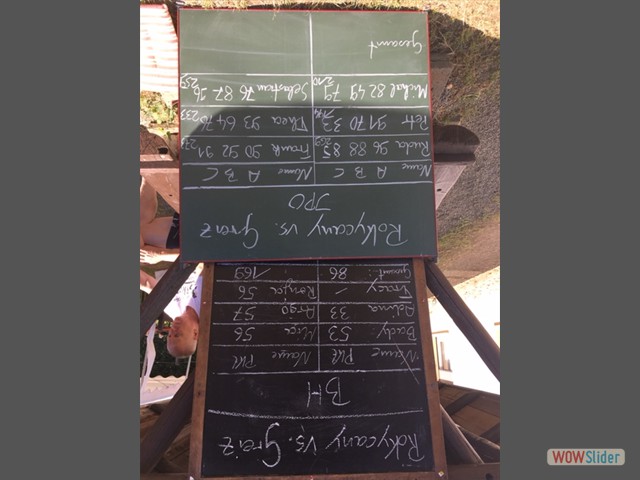 Rokycany vs. Greiz
BH
Name Pkt Name Pkt
Bady: 53 56
Adina 33 Argo 57
Tracy – Ronja 56
Gesamt: 86 169
Rokycany vs. Greiz
JPO
Name A B C Name A B C
96 88 85 269 Frank 90 92 91 273
Petr 91 70 33 Thea 93 64 76 233
Michal 82 49 79 210 Sebastian 76 87 96 259
Gesamt
WOWSlider